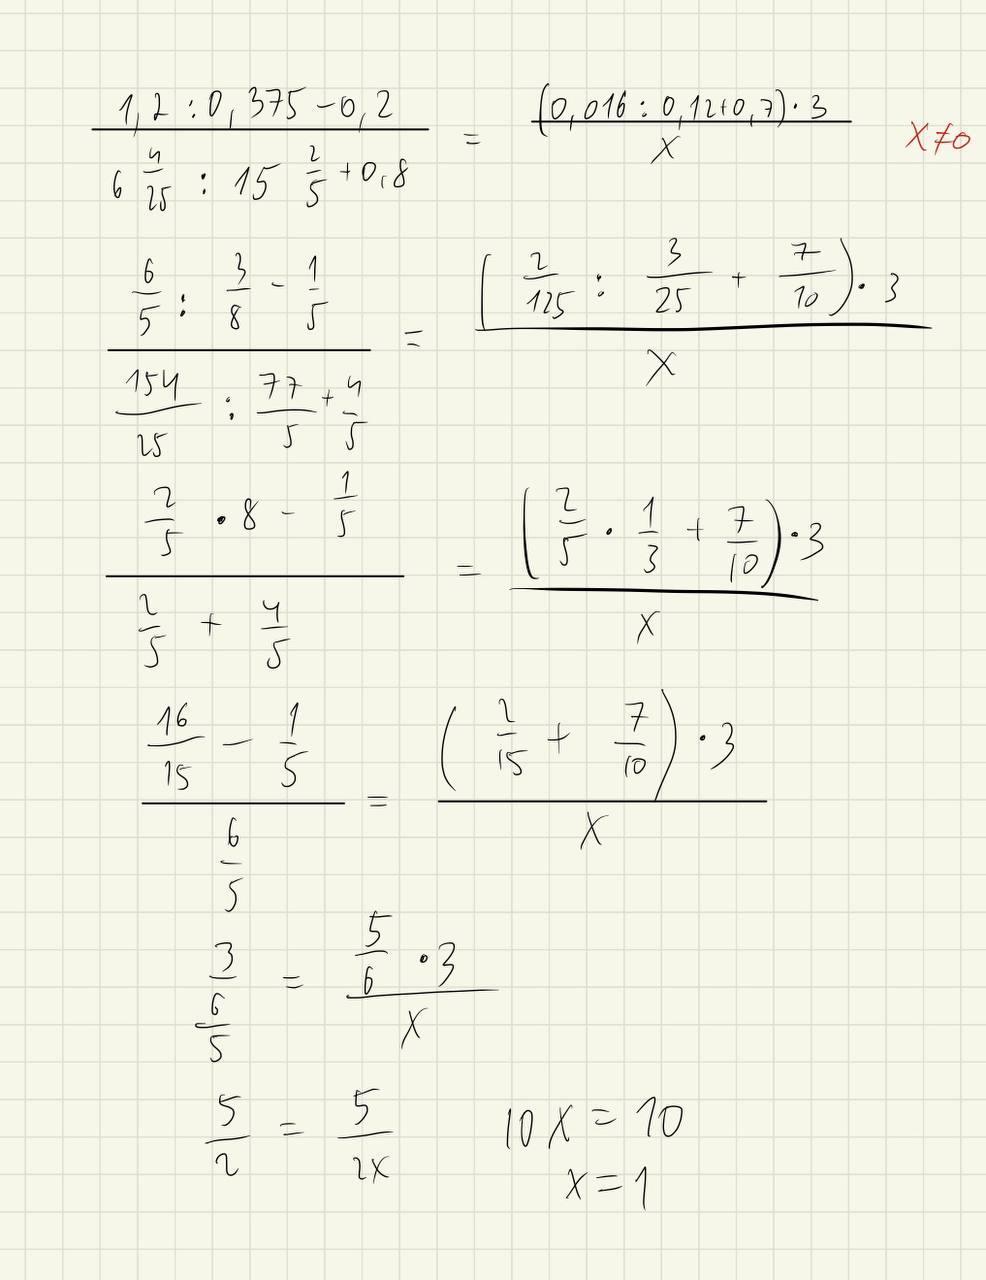 (1,2 : 0,375 - 0,2) / (6 4/25 : 15 2/5 + 0,8) = ((0,016 : 0,12 + 0,7) · 3) / x    x ≠ 0
(6/5 : 3/8 - 1/5) / (154/25 : 77/5 + 4/5) = ((2/125 : 3/25 + 7/10) · 3) / x
(2/5 · 8 - 1/5) / (2/5 + 4/5) = ((2/5 · 1/3 + 7/10) · 3) / x
(16/15 - 1/5) / (6/5) = ((2/15 + 7/10) · 3) / x
3 / (6/5) = (5/6 · 3) / x
5/2 = 5/2x    10x = 10
x = 1